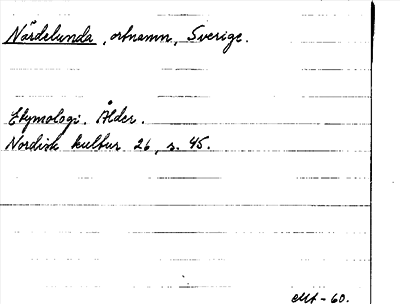 Närdelunda, ortnamn, Sverige.
Etymologi. Ålder.
Nordisk kultur 26, s. 45.
Mt-60.